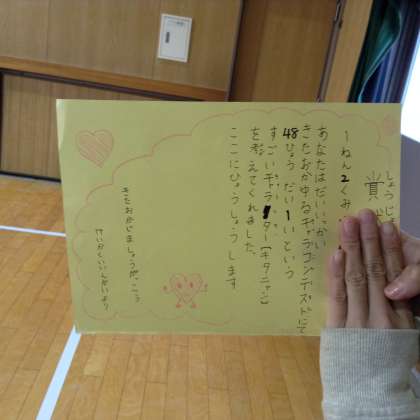 しょうじょう
賞
1ねん2くみ
あなたはだいいっかい
きたおかゆるキャラコンテストにて
48ひょう だい1いという
すごいキャラクター[キタニャン]
を考えてくれました。
ここにひょうしょうします
きたおかじょうがっこう
けいかくいいんかいより